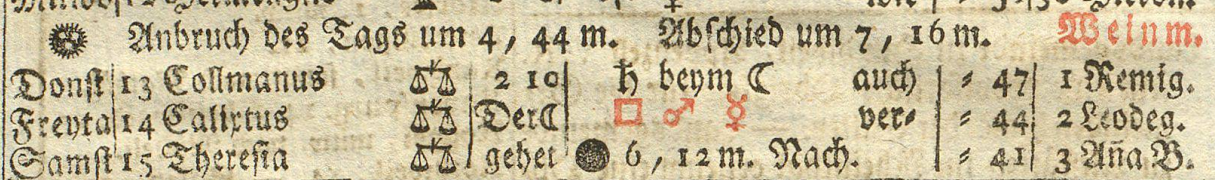 Anbruch des Tags um 4, 44 m. Abschied um 7, 16 m. Weinm.
Donst 13 Collmanus ♎♎ 2 10 ♄ beym ☾ auch = 47 1 Remig.
Freyta 14 Calixtus ♎♎ Der☾ □ ♂ ☿ ver= = 44 2 Leodeg.
Samst 15 Theresia ♎♎ gehet ● 6, 12 m. Nach. = 41 3 Aña B.